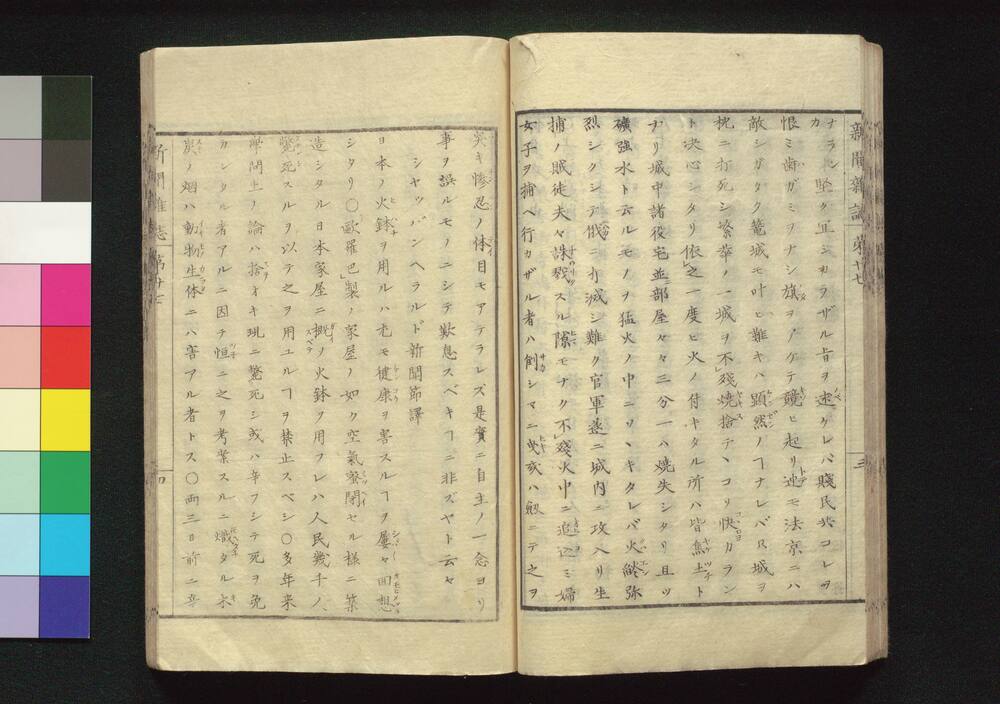 新聞雜誌 第廿七 三
ナラン堅ク正シカラザル旨ヲ述ケレバ賤民共コレヲ
恨ミ歯ガミヲナシ旗ヲアゲテ競ヒ起リ迚モ法京ニハ
敵シガタク籠城モ叶ヒ難キハ顕然ノヿナレバ只城ヲ
枕ニ打死シ繁華ノ一城ヲ不殘焼捨テヽコソ快カラン
ト决心シタリ依之一度ヒ火ノ付キタル所ハ皆焦土ト
ナリ城中諸役宅並部屋々々三分一ハ焼失シタリ且ツ
礦強水ト云ルモノヲ猛火ノ中ニソヽキタレバ火焔弥
烈シクシテ俄ニ打滅シ難ク官軍遂ニ城内ニ攻入リ生
捕ノ賊徒夫々誅戮スル隙モナク不殘火中ニ追込ミ婦
女子ヲ捕ヘ行カザル者ハ倒シマニ曳或ハ劔ニテ之ヲ
突キ惨忍ノ体目モアテラレズ是實ニ自主ノ一念ヨリ
事ヲ誤ルモノニシテ歎息スベキヿニ非ズヤト云々
シャッパンヘラルド新聞節譯
日本ノ火鉢ヲ用ルハ尤モ健康ヲ害スルヿヲ屡々回想
シタリ〇歐羅巴製ノ家屋ノ如ク空氣密閉セル様ニ築
造シタル日本家屋ニ概ノ火鉢ヲ用フレハ人民幾千ノ
斃死スルヲ以テ之ヲ用ユルヿヲ禁止スベシ〇多年来
學問上ノ論ハ捨オキ現ニ斃死シ或ハ辛フシテ死ヲ免
カレタル者アルニ因テ恒ニ之ヲ考案スルニ熾タル木
炭ノ烟ハ動物生体ニハ害アル者トス〇両三日前ニ辛
新聞雜誌 第廿七 四